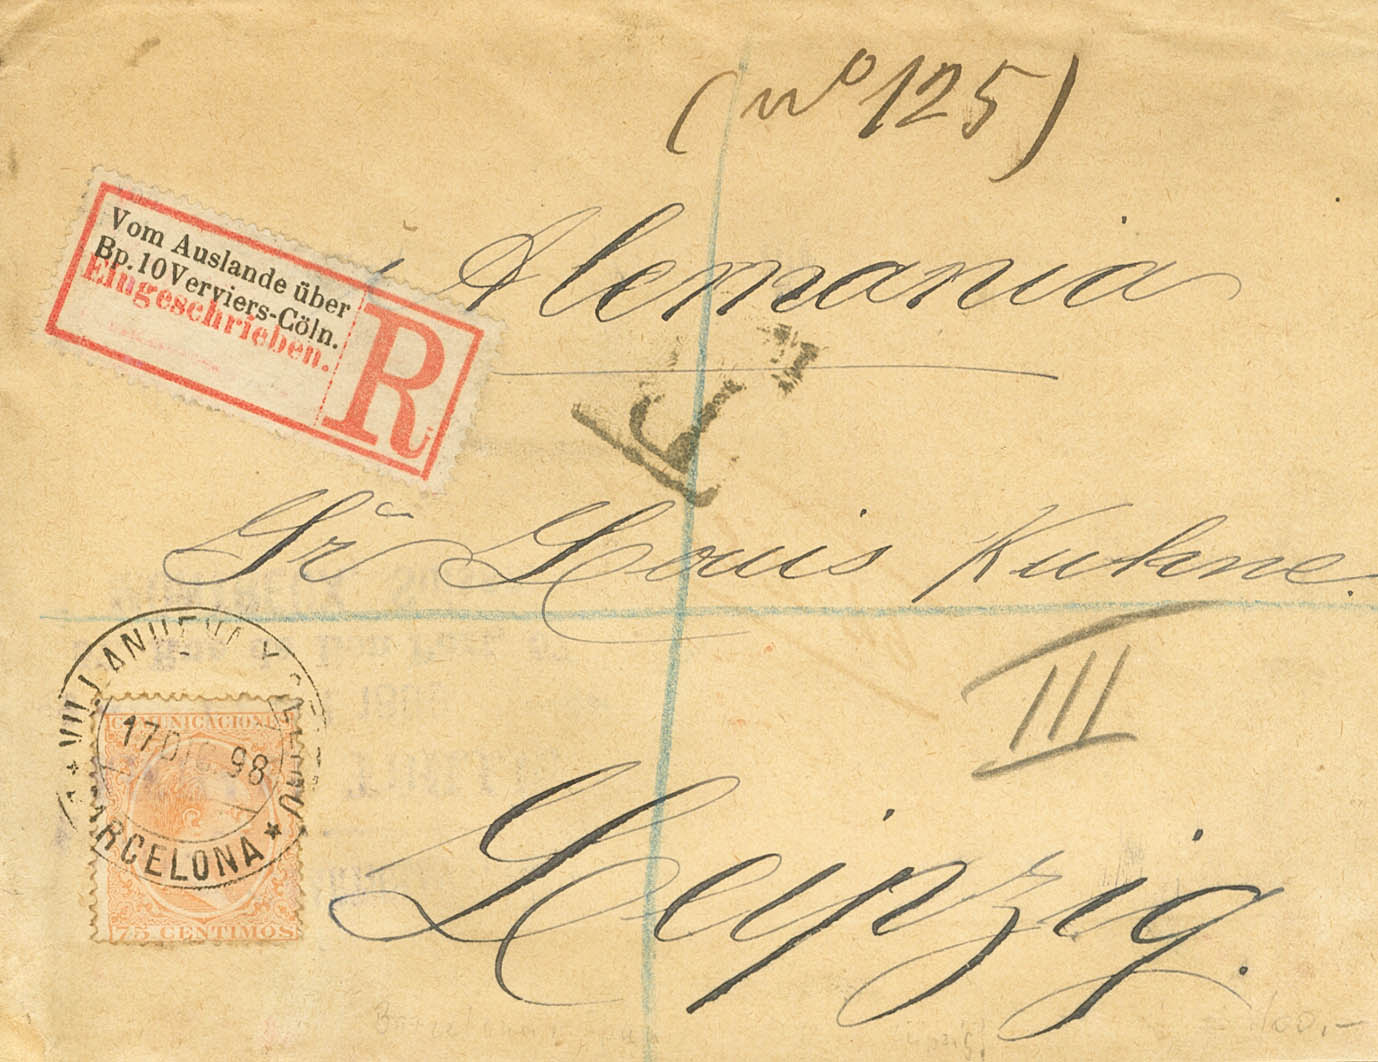 (nº 125)
Alemania
Vom Auslande über
Bp.10 Verviers-Cöln.
Eingeschrieben.
R
Sr Louis Kuhne
III
VILLANUEVA Y GELTRU
17 DIC. 98
BARCELONA
COMUNICACIONES
75 CENTIMOS
Leipzig.